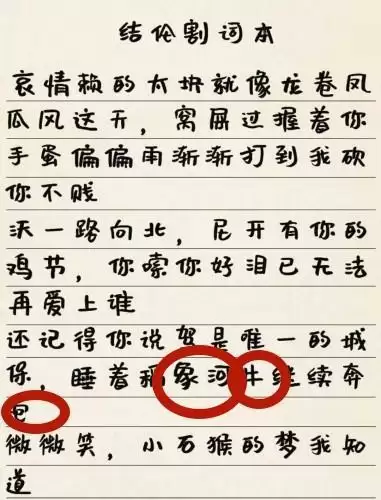 结伦割词本
哀情赖的太块就像龙卷凤
瓜风这天，窝屎过握着你
手蛋偏偏雨渐渐打到我砍
你不贱
沃一路向北，尼开有你的
鸡节，你嗦你好泪已无法
再爱上谁
还记得你说驾是唯一的城
保，睡着稻象河牛继续奔
包
微微笑，小石猴的梦我知
道